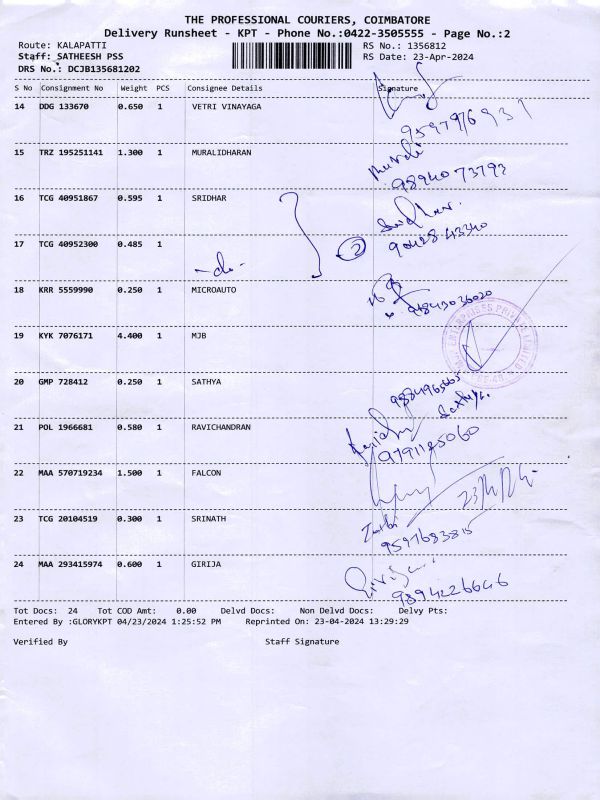 THE PROFESSIONAL COURIERS, COIMBATORE
Delivery Runsheet - KPT - Phone No.:0422-3505555 - Page No.:2
Route: KALAPATTI RS No.: 1356812
Staff: SATHEESH PSS RS Date: 23-Apr-2024
DRS No.: DCJB135681202
S No Consignment No Weight PCS Consignee Details Signature
14 DDG 133670 0.650 1 VETRI VINAYAGA
15 TRZ 195251141 1.300 1 MURALIDHARAN
Murali
9894073793
16 TCG 40951867 0.595 1 SRIDHAR
Sridhar
17 TCG 40952300 0.485 1
2
9042843340
-do-
18 KRR 5559990 0.250 1 MICROAUTO
9843036020
19 KYK 7076171 4.400 1 MJB
ENTERPRISES PRIVATE LIMITED
20 GMP 728412 0.250 1 SATHYA
9884965665
Sathya.
21 POL 1966681 0.580 1 RAVICHANDRAN
9791185060
22 MAA 570719234 1.500 1 FALCON
23/4/24
23 TCG 20104519 0.300 1 SRINATH
9597683815
24 MAA 293415974 0.600 1 GIRIJA
Girija
9894226646
Tot Docs: 24 Tot COD Amt: 0.00 Delvd Docs: Non Delvd Docs: Delvy Pts:
Entered By :GLORYKPT 04/23/2024 1:25:52 PM Reprinted On: 23-04-2024 13:29:29
Verified By Staff Signature